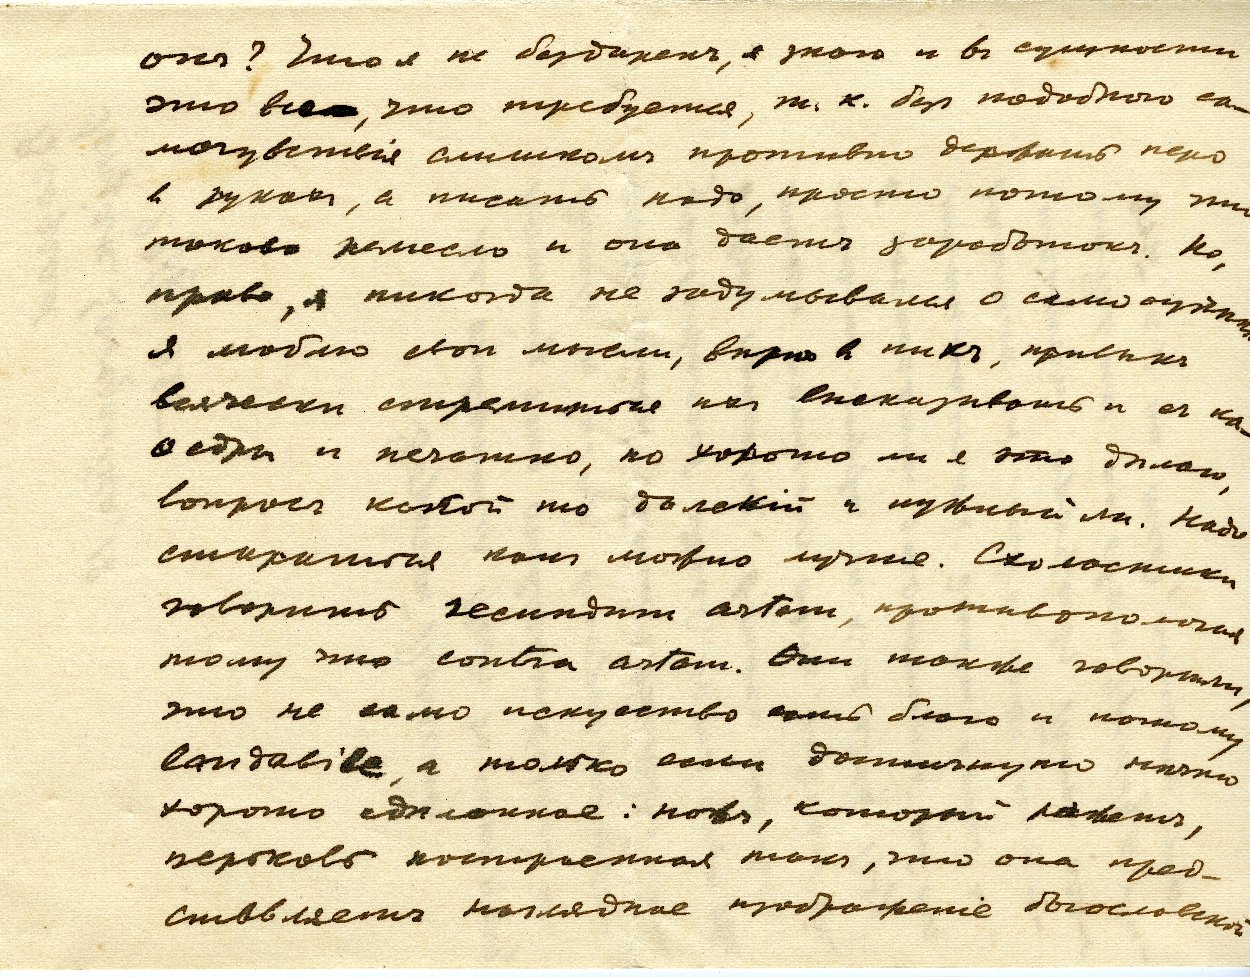 онъ? Что я не бездаренъ, я знаю и въ сущности
это все, что требуется, т. к. безъ подобного са-
мочувствія слишкомъ противно держать перо
в рукахъ, а писать надо, просто потому что
таково ремесло и оно даетъ заработокъ. Но,
право, я никогда не задумывался о самооцѣнкѣ
я люблю свои мысли, вѣрю в нихъ, привыкъ
всячески стремиться ихъ высказывать и съ ка-
ѳедры и печатно, но хорошо ли я это дѣлаю,
вопросъ какой то далекій и нужный ли. Надо
стараться какъ можно лучше. Схоластики
говорить secundum artem, противополагая
тому что contra artem. Они также говорили,
что не само искусство есть благо и потому
laudabile, а только если достигнуто нѣчто
хорошо сдѣланное: ножъ, который рѣжетъ,
церковь построенная такъ, что она пред-
ставляетъ наглядное изображеніе богословской